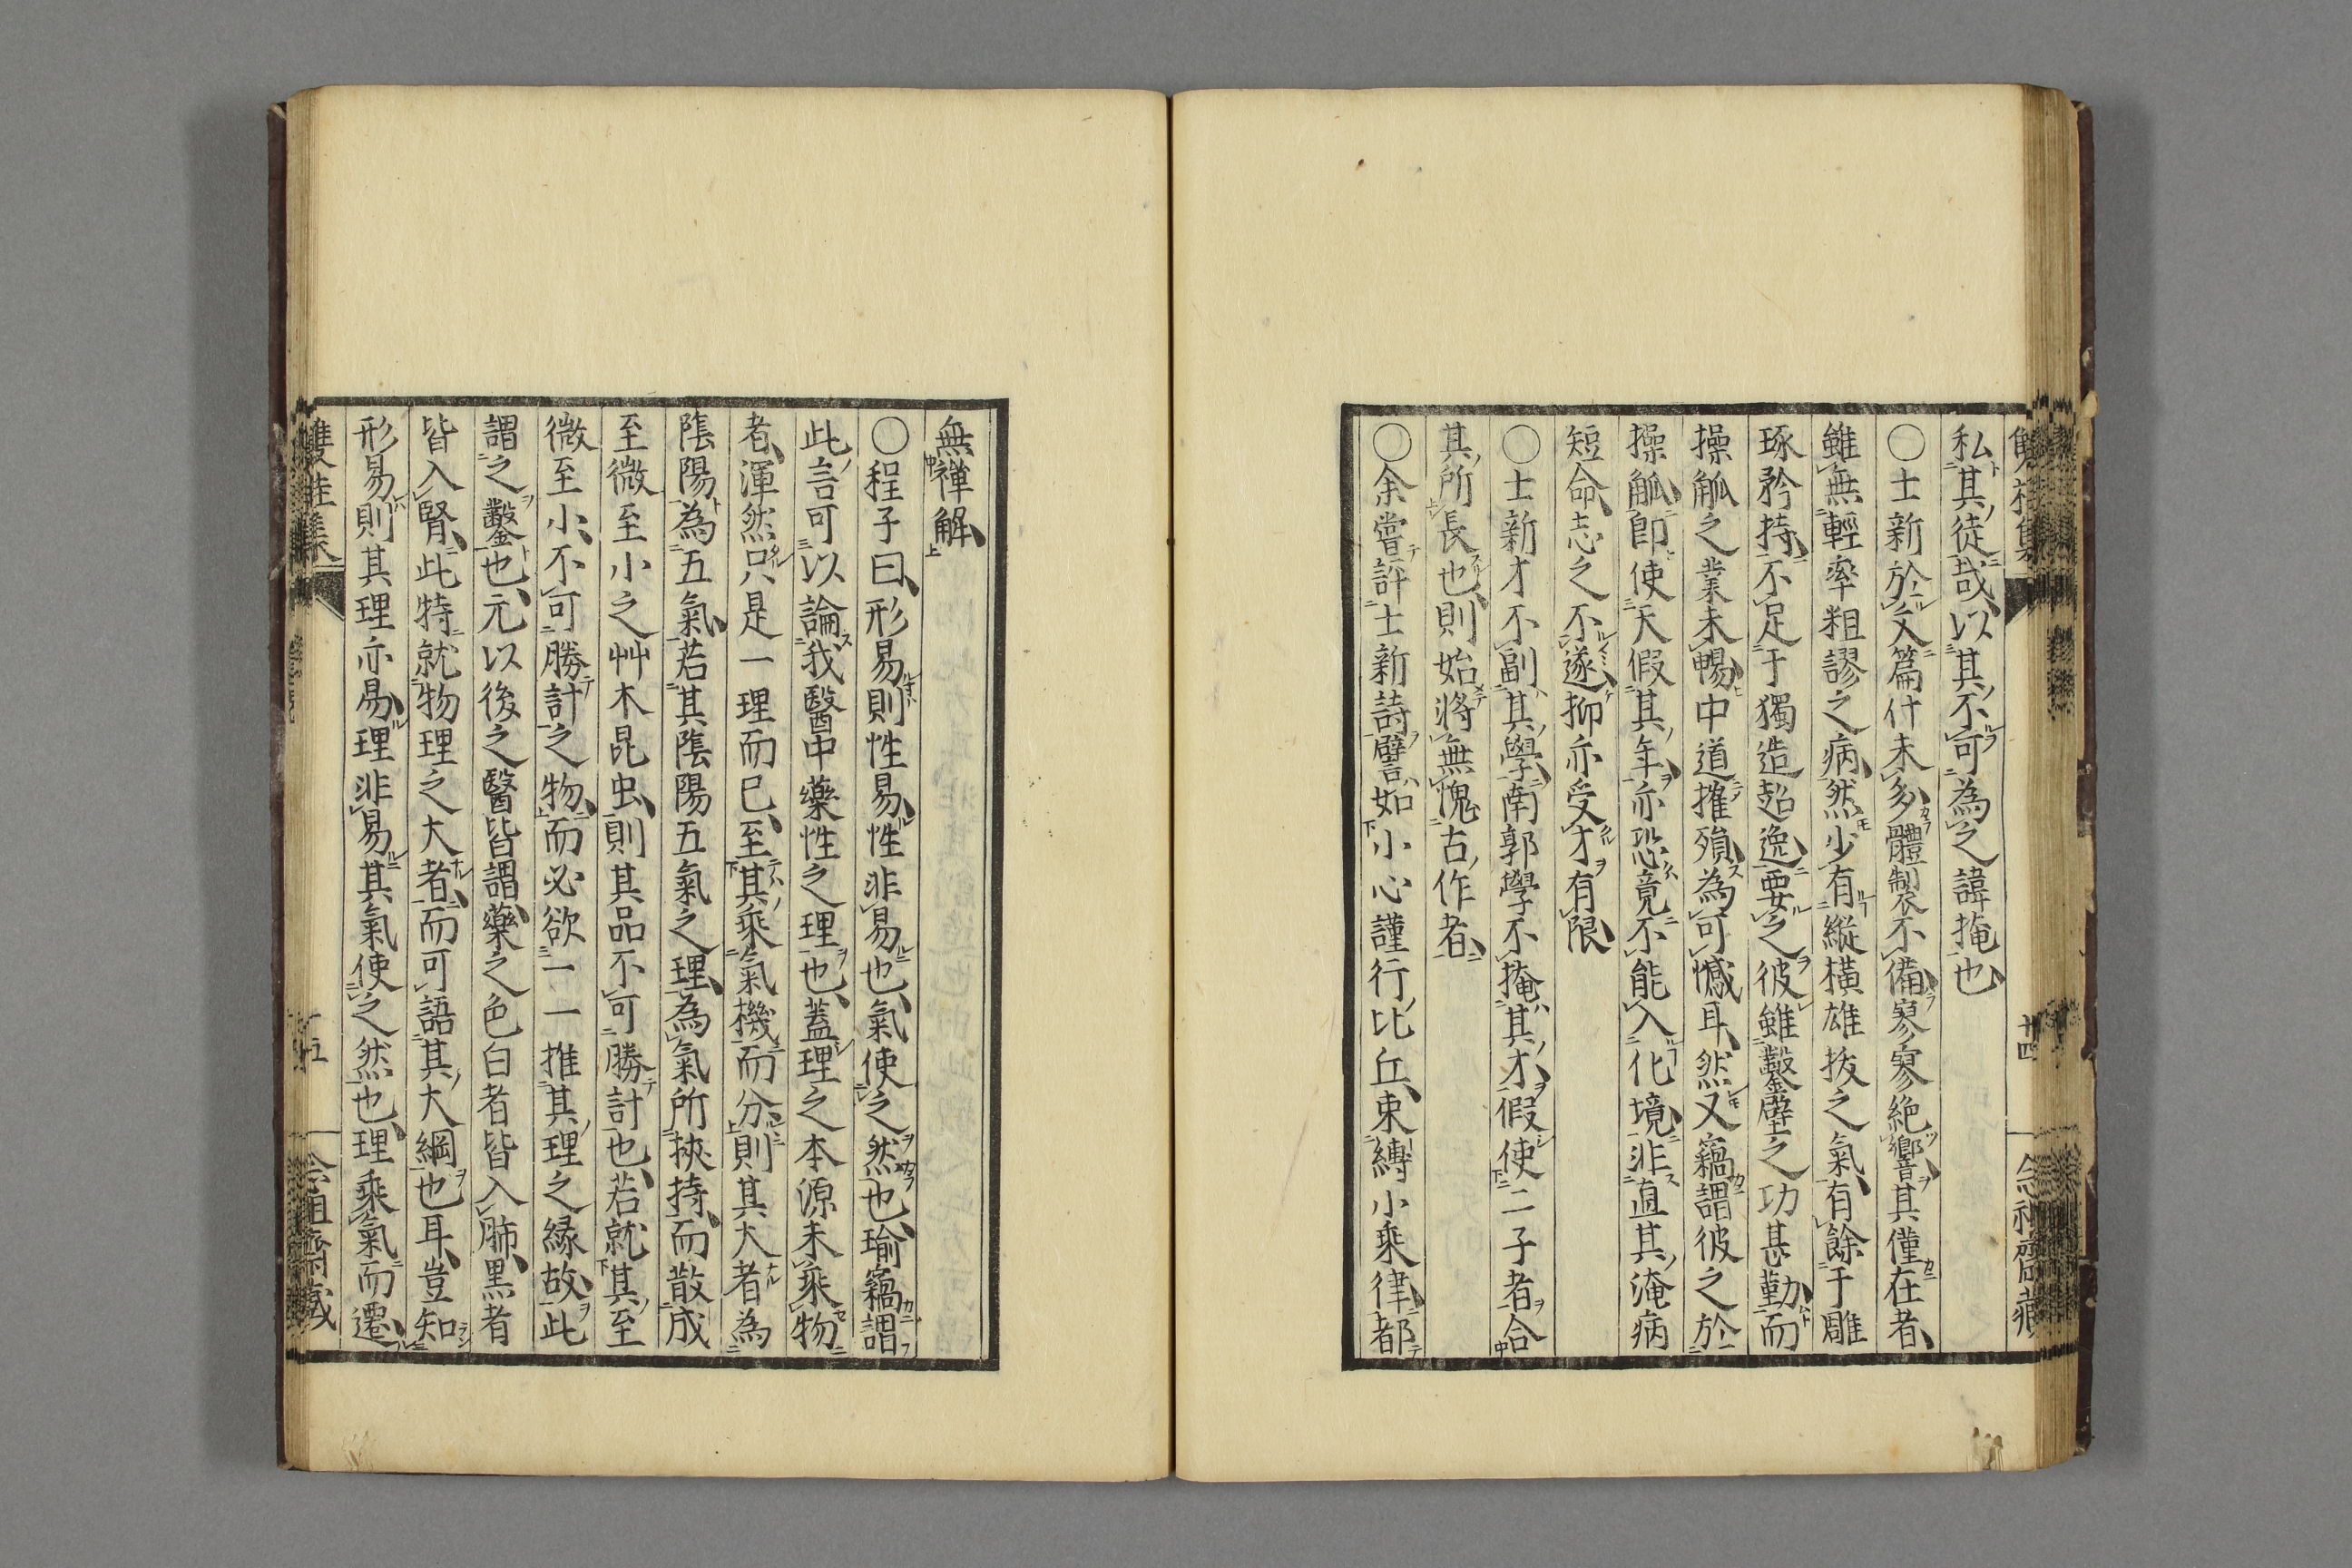 廿四
私其徒哉以其不可為之諱掩也
○士新於文篇什未多體製不備寥寥絶響其僅在者
雖無輕率粗謬之病然少有縱横雄拔之氣有餘于雕
琢矜持不足于獨造超逸要之彼雖鑿壁之功甚勤而
操觚之業未暢中道摧殞為可憾耳然又竊謂彼之於
操觚即使天假其年亦恐竟不能入化境非直其淹病
短命志之不遂抑亦受才有限
○士新才不副其學南郭學不掩其才假使二子者合
其所長也則始將無愧古作者
○余嘗評士新詩譬如小心謹行比丘束縛小乘律都
無禅解
○程子曰形易則性易性非易也氣使之然也瑜竊謂
此言可以論我醫中藥性之理也蓋理之本源未乘物
者渾然只是一理而已至其乘氣機而分則其大者為
陰陽為五氣若其陰陽五氣之理為氣所挾持而散成
至微至小之艸木昆虫則其品不可勝計也若就其至
微至小不可勝計之物而必欲一一推其理之縁故此
謂之鑿也元以後之醫皆謂藥之色白者皆入肺黒者
皆入腎此特就物理之大者而可語其大綱也耳豈知
形易則其理亦易理非易其氣使之然也理乘氣而遷